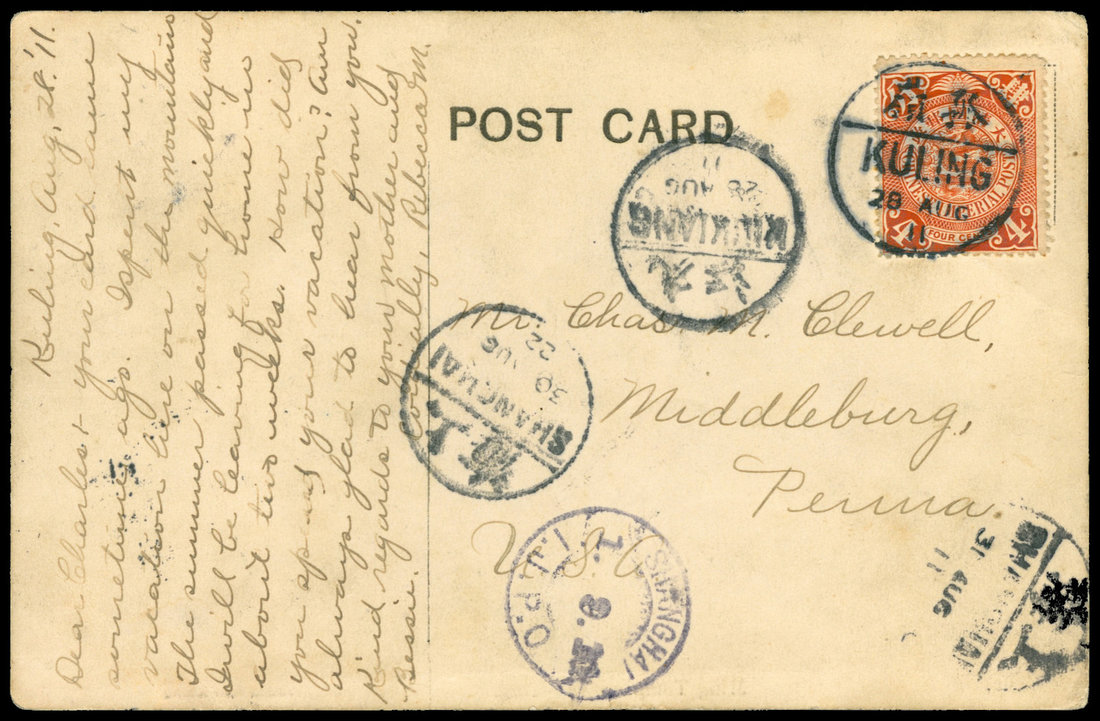 Kuling, Aug, 28. '11.
Dear Charles & your card came
sometime ago. I spent my
vacation here on the mountains
The summer passed quickly and
I will be leaving for home in
about two weeks. How did
you spend your vacation? Am
always glad to hear from you.
Kind regards to your mother and
Bessie. Cordially, Rebecca M.
POST CARD
KULING
28 AUG
11
4 4
FOUR CEN
11
28 AUG
KIUKIANG
江九
Mr. Chas. M. Clewell,
Middleburg,
Penna.
U.S.A.
22
30 AUG
SHANGHAI
海上
SHANGHAI
I.J.P.O.
1. 9.
SHANGHAI
31 AUG
11